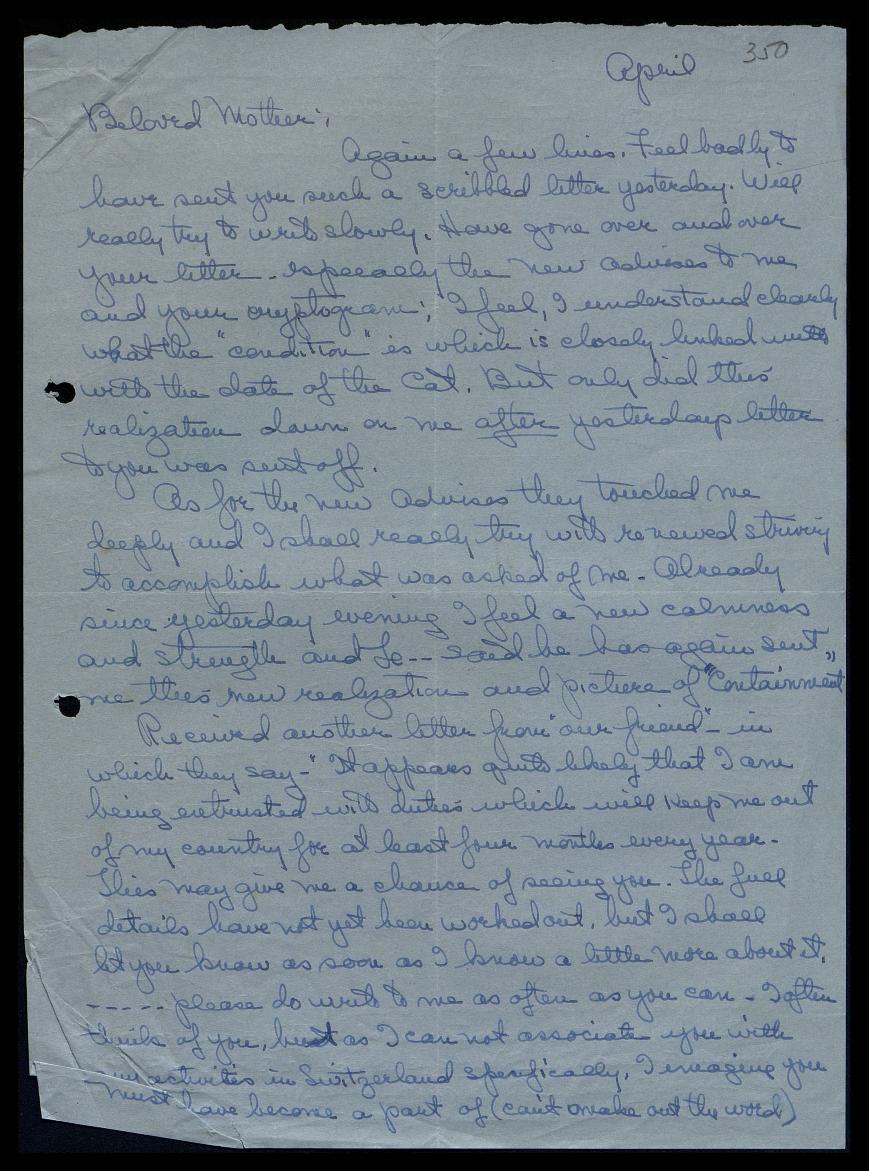 April 350
Beloved Mother;
Again a few lines. Feel badly to
have sent you such a scribbled letter yesterday. Will
really try to write slowly. Have gone over and over
your letter - especially the new advises to me
and your cryptogram; I feel, I understand clearly
what the "condition" is which is closely linked
with the date of the Cat. But only did this
realization dawn on me after yesterdays letter
to you was sent off.
As for the new advises they touched me
deeply and I shall really try with renewed striving
to accomplish what was asked of me. Already
since yesterday evening I feel a new calmness
and strength and Je-- said he has again sent
me this new realization and picture of "Containment"
Received another letter from "our friend" - in
which they say - "It appears quite likely that I am
being entrusted with duties which will keep me out
of my country for at least four months every year.
This may give me a chance of seeing you. The full
details have not yet been worked out, but I shall
let you know as soon as I know a little more about it.
----- please do write to me as often as you can - I often
think of you, but as I can not associate you with
any activities in Switzerland specifically, I imagine you
must have become a part of (can't make out the word)